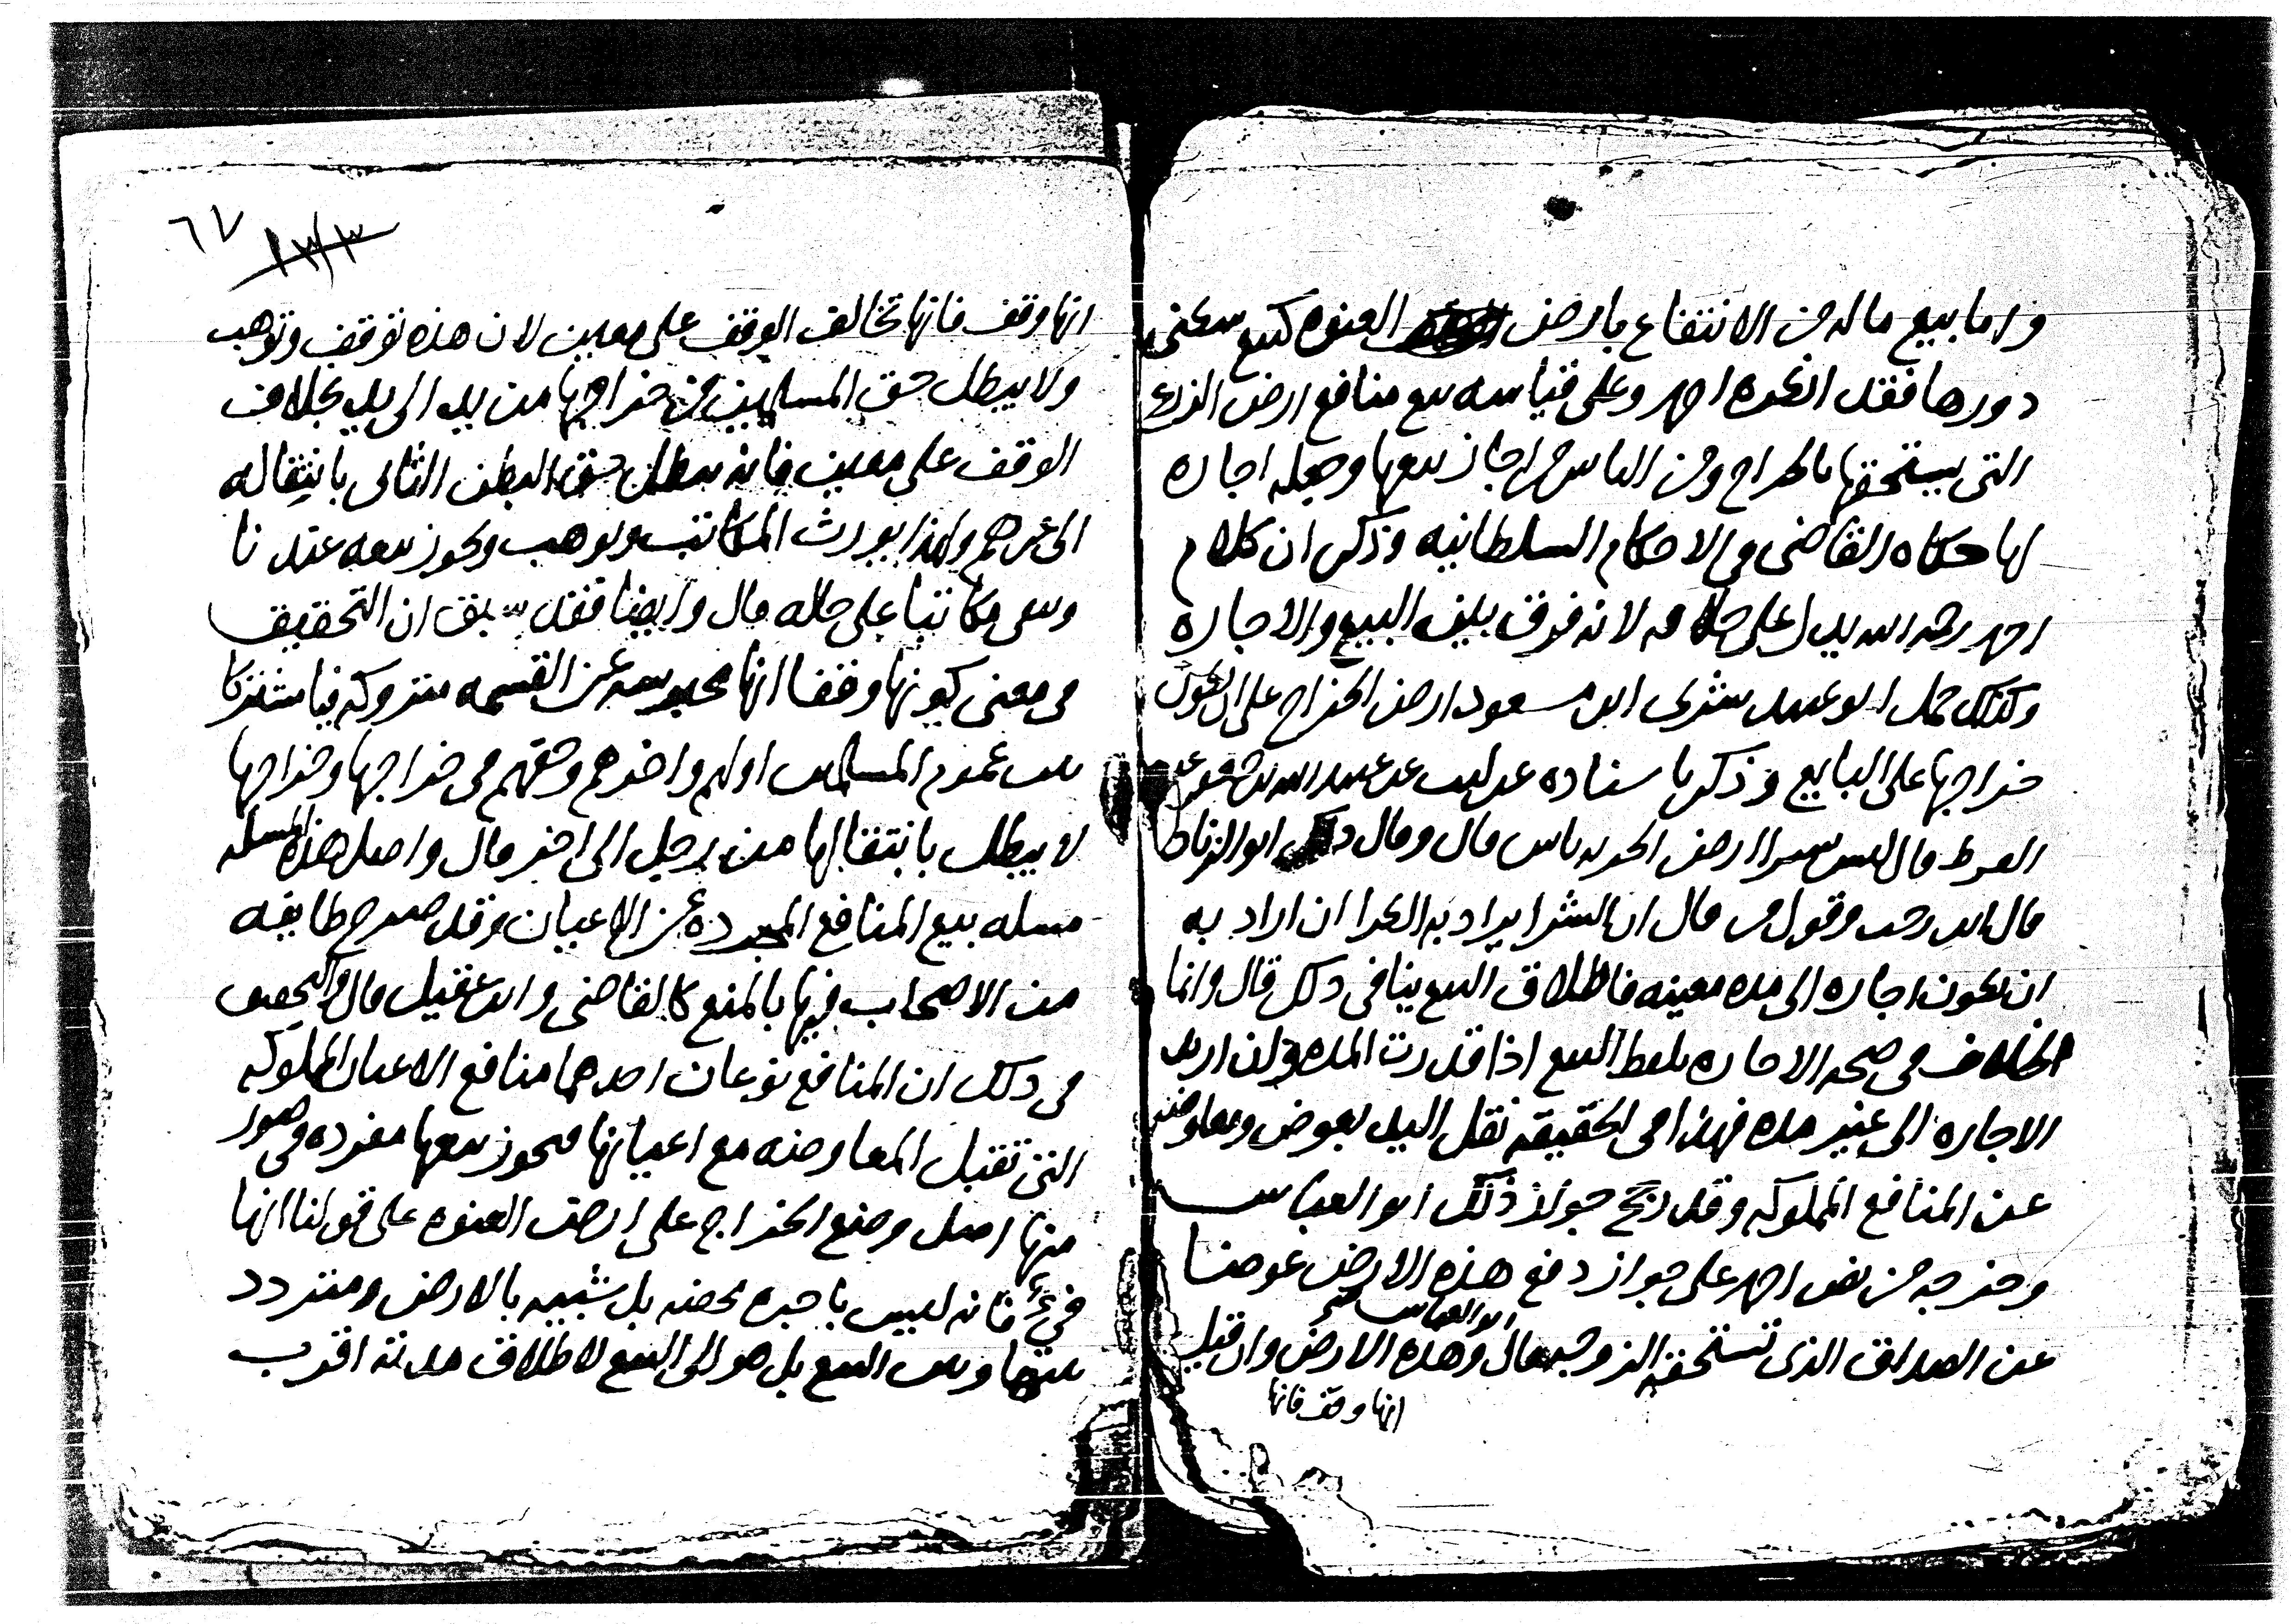 واما بيع ماله من الانتفاع بارض العنوه كبيع سكنى
دورها فقد انكره احمد وعلى قياسه بيع منافع ارض الزرع
التى يستحقها بالخراج ومن الناس من اجاز بيعها وجعله اجاره
لها حكاه القاضى فى الاحكام السلطانيه وذكر ان كلام
احمد رحمه الله يدل على خلافه لانه فرق بين البيع والاجاره
وكذلك حمل ابو عبيد شرى ابن مسعود ارض الخراج على ان يكون
خراجها على البايع وذكر باسناده عن ليث عن عبيد الله بن
قال ليس بشرا ارض الجزيه باس قال وقال ذلك ابو الزناد
قال ابن رجب وقول من قال ان الشرا يراد به الكرا ان اراد به
ان يكون اجاره الى مده معينه فاطلاق البيع ينافى ذلك قال وانما
الخلاف فى صحه الاجاره بلفظ البيع اذا قدرت المده وان اريد
الاجاره الى غير مده فهذا فى الحقيقه نقل اليد بعوض ومعاوضه
عن المنافع المملوكه وقد رجح جواز ذلك ابو العباس
وخرجه من نص احمد على جواز دفع هذه الارض عوضا
عن الصداق الذى تستحقه الزوجه قال ابو العباس وهذه الارض وان قيل
انها وقف فانها
٦٧
١٣/٣
انها وقف فانها تخالف الوقف على معين لان هذه توقف وتوهب
ولا يبطل حق المسلمين من خراجها من يد الى يد بخلاف
الوقف على معين فانه يبطل حق البطن الثانى بانتقاله
الى غيرهم ولهذا يورث المكاتب ويوهب ويجوز بيعه عندنا
ويبقى مكاتبا على حاله قال وايضا فقد سبق ان التحقيق
فى معنى كونها وقفا انها محبوسه عن القسمه متروكه فيا مشتركا
بين عموم المسلمين اولهم واخرهم وحقهم فى خراجها وخراجها
لا يبطل بانتقالها من رجل الى اخر قال واصل هذه المسله
مسله بيع المنافع المجرده عن الاعيان وقد صرح طايفه
من الاصحاب فيها بالمنع كالقاضى وابن عقيل قال والتحقيق
فى ذلك ان المنافع نوعان احدهما منافع الاعيان المملوكه
التى تقبل المعاوضه مع اعيانها فيجوز بيعها مفرده فى صور
منها اصل وضع الخراج على ارض العنوه على قولنا انها
فئ فانه ليس باجره محضه بل شبيه بالارض ومتردد
بينها وبين البيع بل هو الى البيع لاطلاق مدته اقرب